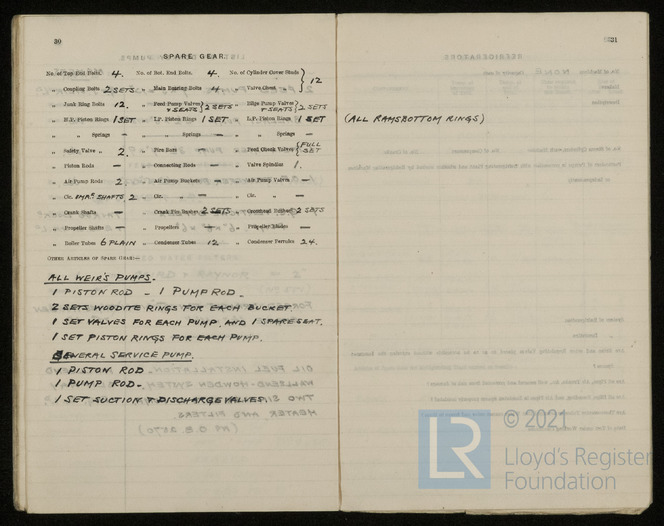 30
SPARE GEAR.
No. of Top End Bolts. 4. No. of Bot. End Bolts. 4. No. of Cylinder Cover Studs } 12
„ Coupling Bolts 2 SETS „ Main Bearing Bolts 4 „ Valve Chest „
„ Junk Ring Bolts 12. „ Feed Pump Valves & SEATS } 2 SETS „ Bilge Pump Valves & SEATS } 2 SETS
„ H.P. Piston Rings 1 SET „ I.P. Piston Rings 1 SET „ L.P. Piston Rings 1 SET (ALL RAMSBOTTOM RINGS)
„ „ Springs — „ „ Springs — „ „ Springs —
„ Safety Valve „ 2. „ Fire Bars — „ Feed Check Valves { FULL SET
„ Piston Rods — „ Connecting Rods — „ Valve Spindles 1.
„ Air Pump Rods 2 „ Air Pump Buckets — „ Air Pump Valves —
„ Cir. SHAFTS 2 „ Cir. „ — „ Cir. „ —
„ Crank Shafts — „ Crank Pin Bushes 2 SETS „ Crosshead Bushes 2 SETS
„ Propeller Shafts — „ Propellers — „ Propeller Blades —
„ Boiler Tubes 6 PLAIN „ Condenser Tubes 12 „ Condenser Ferrules 24.
OTHER ARTICLES OF SPARE GEAR:—
ALL WEIR'S PUMPS.
1 PISTON ROD - 1 PUMP ROD.
2 SETS WOODITE RINGS FOR EACH BUCKET.
1 SET VALVES FOR EACH PUMP, AND 1 SPARE SEAT.
1 SET PISTON RINGS FOR EACH PUMP.
GENERAL SERVICE PUMP.
1 PISTON ROD
1 PUMP ROD.
1 SET SUCTION & DISCHARGE VALVES.
31
LR
© 2021
Lloyd's Register
Foundation